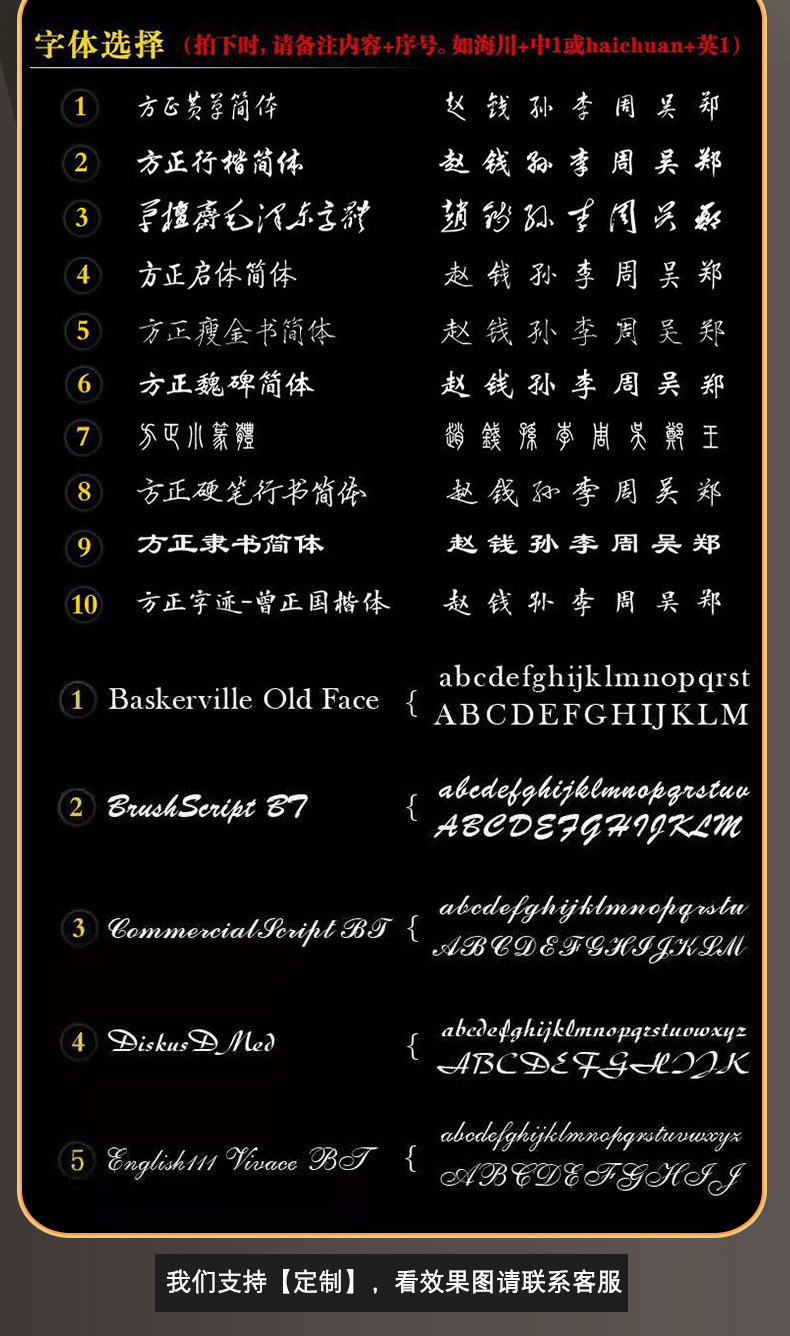 字体选择 (拍下时,请备注内容+序号。如海川+中1或haichuan+英1)
1 方正黄草简体 赵 钱 孙 李 周 吴 郑
2 方正行楷简体 赵 钱 孙 李 周 吴 郑
3 草檀斋毛泽东字體 趙 錢 孙 李 周 吴 鄭
4 方正启体简体 赵 钱 孙 李 周 吴 郑
5 方正瘦金书简体 赵 钱 孙 李 周 吴 郑
6 方正魏碑简体 赵 钱 孙 李 周 吴 郑
7 方正小篆體 趙 錢 孫 李 周 吳 鄭 王
8 方正硬笔行书简体 赵 钱 孙 李 周 吴 郑
9 方正隶书简体 赵 钱 孙 李 周 吴 郑
10 方正字迹-曾正国楷体 赵 钱 孙 李 周 吴 郑
1 Baskerville Old Face { abcdefghijklmnopqrst
ABCDEFGHIJKLM
2 BrushScript BT { abcdefghijklmnopqrstuv
ABCDEFGHIJKLM
3 CommercialScript BT { abcdefghijklmnopqrstu
ABCDEFGHIJKLM
4 DiskusDMed { abcdefghijklmnopqrstuvwxyz
ABCDEFGHIJK
5 English111 Vivace BT { abcdefghijklmnopqrstuvwxyz
ABCDEFGHIJ
我们支持【定制】,看效果图请联系客服